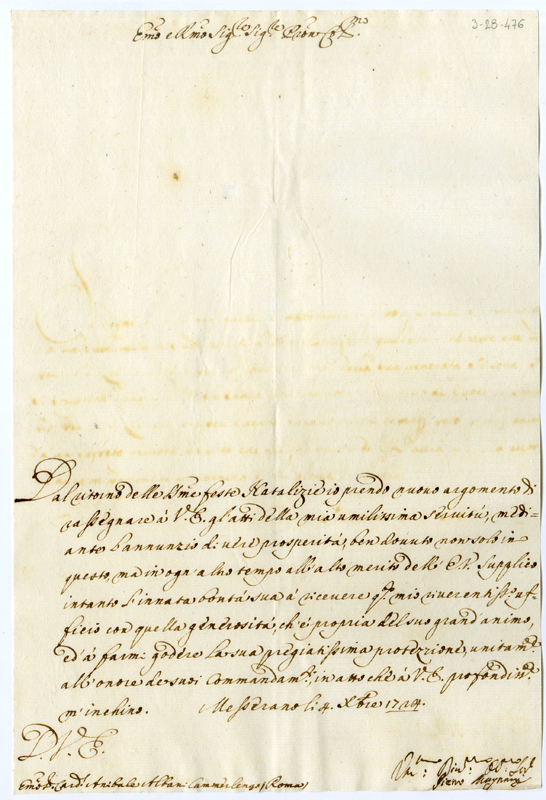 3-28-476
Emo e Rmo Sig.re Sig.re Pron Col.mo
Dal ritorno delle SSme feste Natalizie io prendo nuovo argomento di
rassegnare á V.E. gl'atti della mia umilissima servitú, medi-
ante l'annunzio di vere prosperitá, ben dovuto non solo in
questo, ma in ogn'altro tempo all'alto merito dell'E.V. Supplico
intanto l'innata bontá sua á ricevere qto mio riverentissº uf-
ficio con quella generositá, ch'é propria del suo grand'animo,
ed á farmi godere la sua pregiatissima protezione, unitamte
all'onore de suoi Commandamti; in atto che á V.E. profondmte
m'inchino. Messerano li 4. Xbre 1724.
D.V.E.
Emo Sr. Card. Anibale Albani Cammerlengo Roma